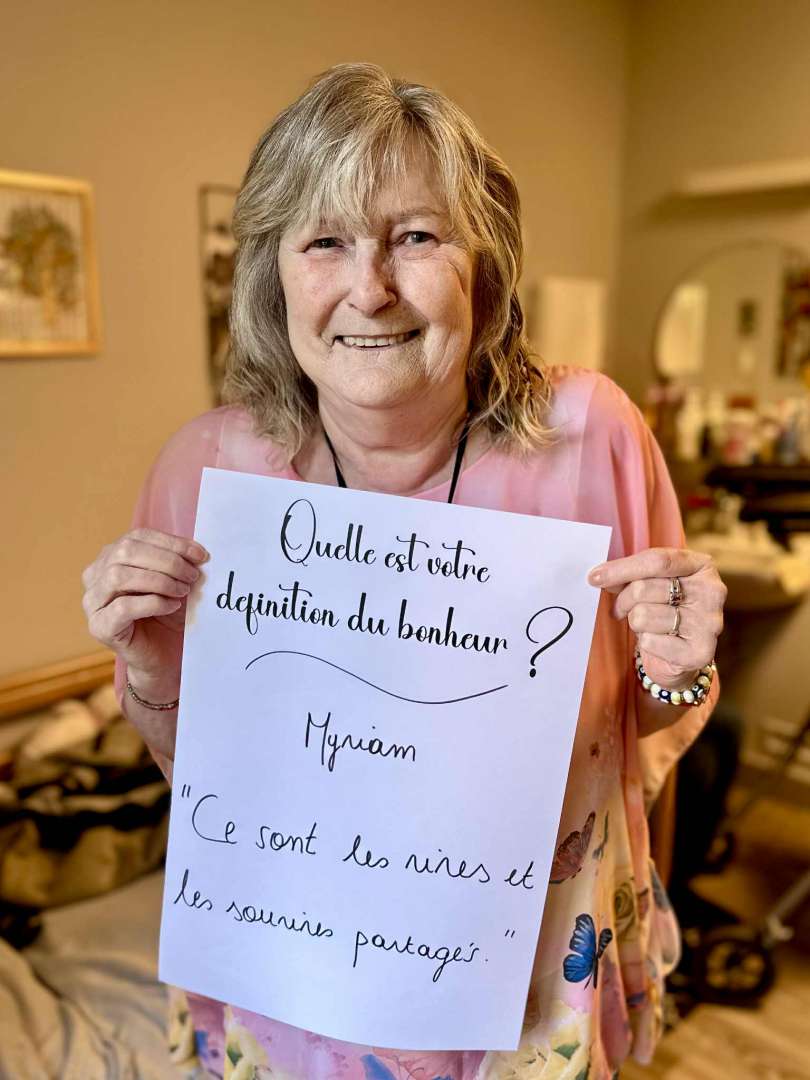 Quelle est votre
definition du bonheur ?
Myriam
"Ce sont les rires et
les sourires partagés."